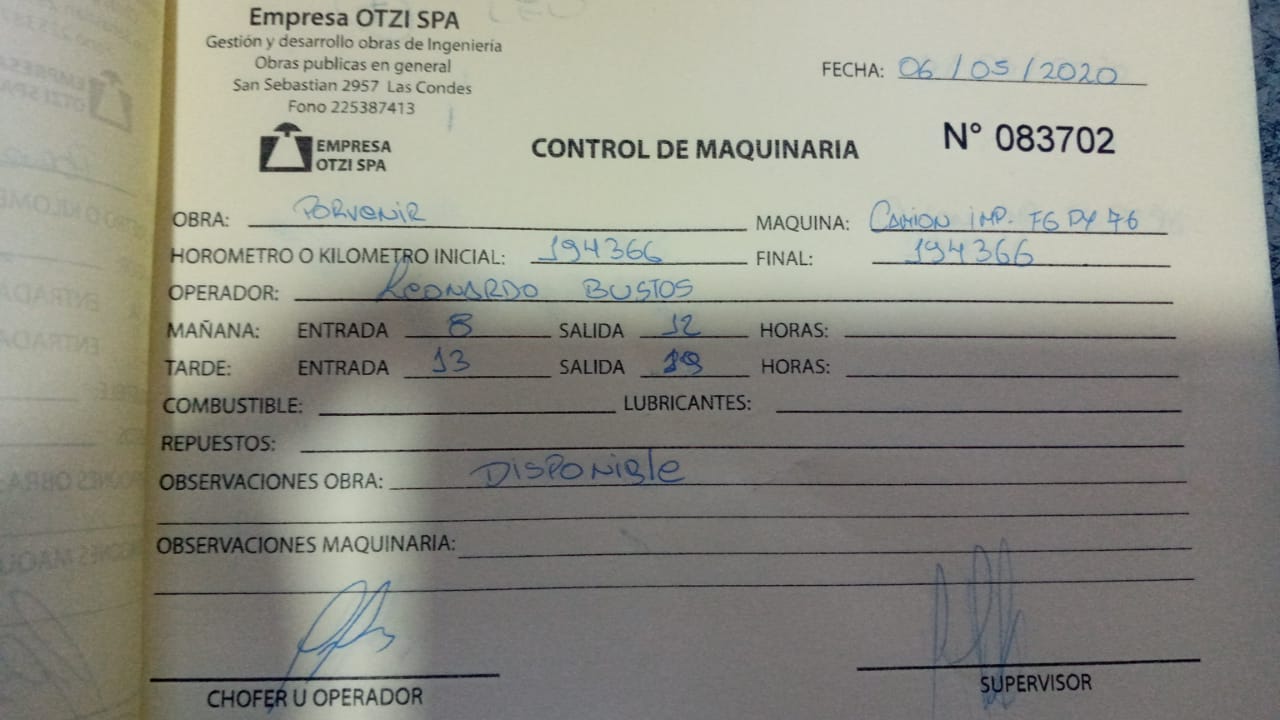 Empresa OTZI SPA
Gestión y desarrollo obras de Ingeniería
Obras publicas en general
San Sebastian 2957 Las Condes
Fono 225387413
FECHA: 06/05/2020
EMPRESA
OTZI SPA
CONTROL DE MAQUINARIA
N° 083702
OBRA: Porvenir MAQUINA: Camion imp. FGDY 76
HOROMETRO O KILOMETRO INICIAL: 194366 FINAL: 194366
OPERADOR: Leonardo Bustos
MAÑANA: ENTRADA 8 SALIDA 12 HORAS:
TARDE: ENTRADA 13 SALIDA HORAS:
COMBUSTIBLE: LUBRICANTES:
REPUESTOS:
OBSERVACIONES OBRA: Disponible
OBSERVACIONES MAQUINARIA:
CHOFER U OPERADOR SUPERVISOR